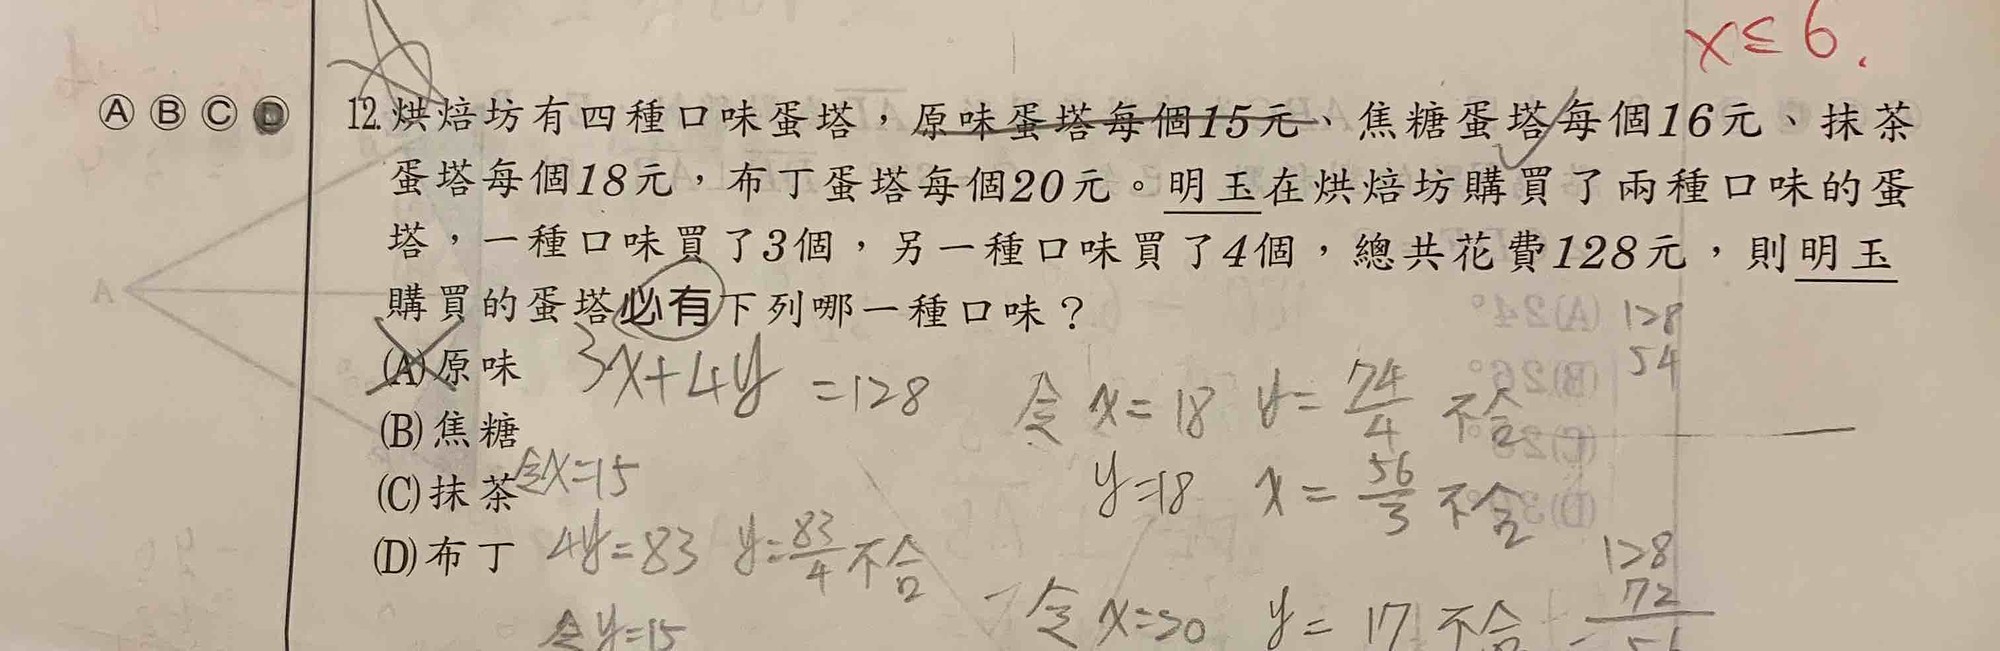 x≤6.
Ⓐ Ⓑ Ⓒ Ⓓ
12.烘焙坊有四種口味蛋塔，原味蛋塔每個15元、焦糖蛋塔每個16元、抹茶
蛋塔每個18元，布丁蛋塔每個20元。明玉在烘焙坊購買了兩種口味的蛋
塔，一種口味買了3個，另一種口味買了4個，總共花費128元，則明玉
購買的蛋塔必有下列哪一種口味？
(A)原味
(B)焦糖
(C)抹茶
(D)布丁
3x+4y=128
令x=15
4y=83 y=83/4 不合
令y=15
令x=18 y=74/4 不合
y=18 x=56/3 不合
令x=20 y=17 不合
128
54
128
72
56
A